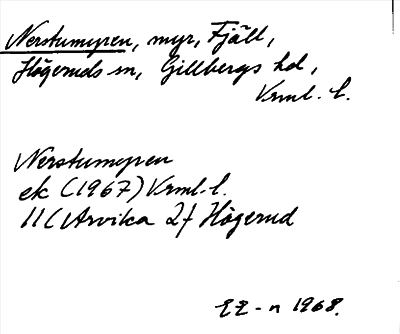 Nerstumyren, myr, Fjäll,
Högeruds sn, Gillbergs hd,
Vrml. l.
Nerstumyren
ek (1967) Vrml. l.
11C Arvika 2f Högerud
EE-n 1968.